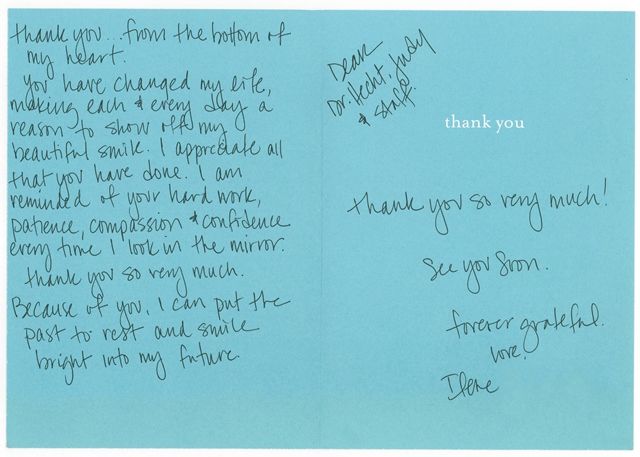 thank you... from the bottom of
my heart.
You have changed my life,
making each & every day a
reason to show off my
beautiful smile. I appreciate all
that you have done. I am
reminded of your hard work,
patience, compassion & confidence
every time I look in the mirror.
thank you so very much.
Because of you, I can put the
past to rest and smile
bright into my future.
Dear
Dr. Hecht, Judy
& staff.
thank you
thank you so very much!
See you soon.
forever grateful.
love,
Ilene